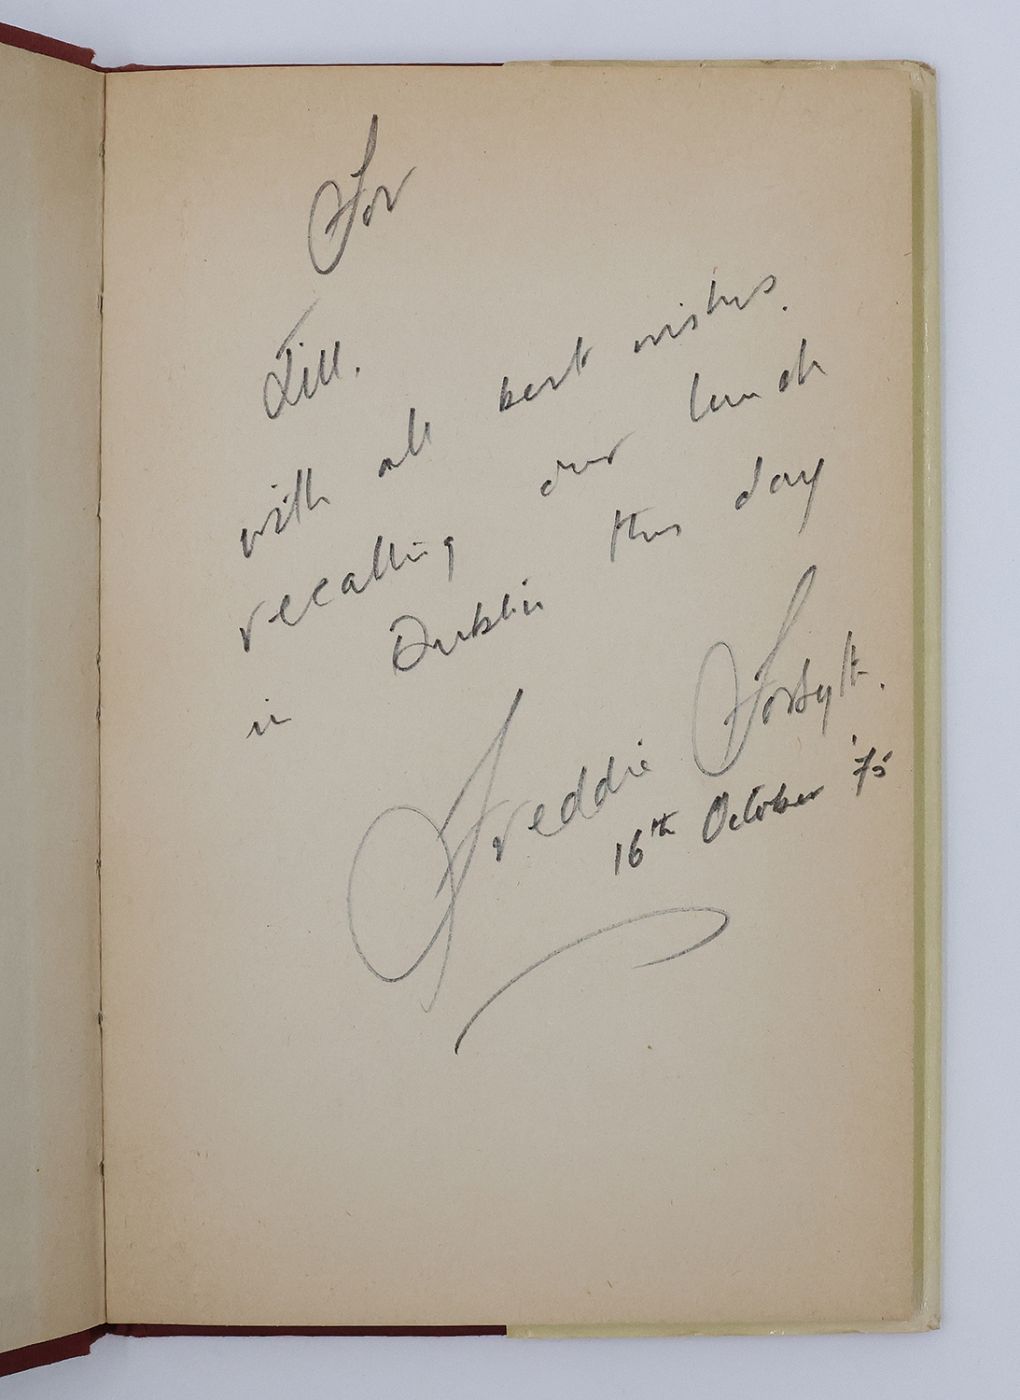 For
Jill.
with all best wishes.
recalling our lunch
in Dublin this day
Freddie Forsyth.
16th October '75